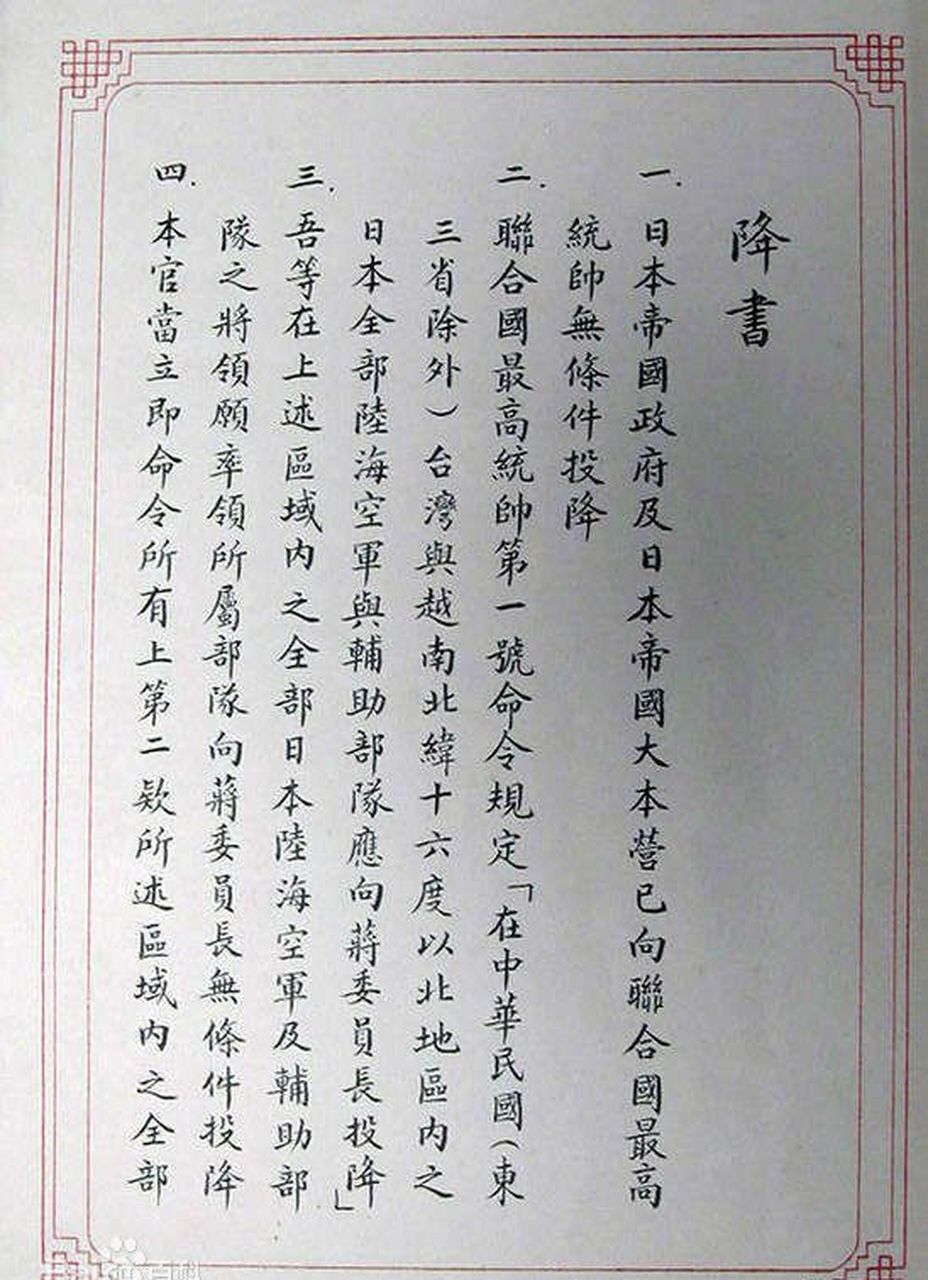 降書
一.日本帝國政府及日本帝國大本營已向聯合國最高
統帥無條件投降
二.聯合國最高統帥第一號命令規定「在中華民國(東
三省除外)台灣與越南北緯十六度以北地區內之
日本全部陸海空軍與輔助部隊應向蔣委員長投降」
三.吾等在上述區域內之全部日本陸海空軍及輔助部
隊之將領願率領所屬部隊向蔣委員長無條件投降
四.本官當立即命令所有上第二款所述區域內之全部